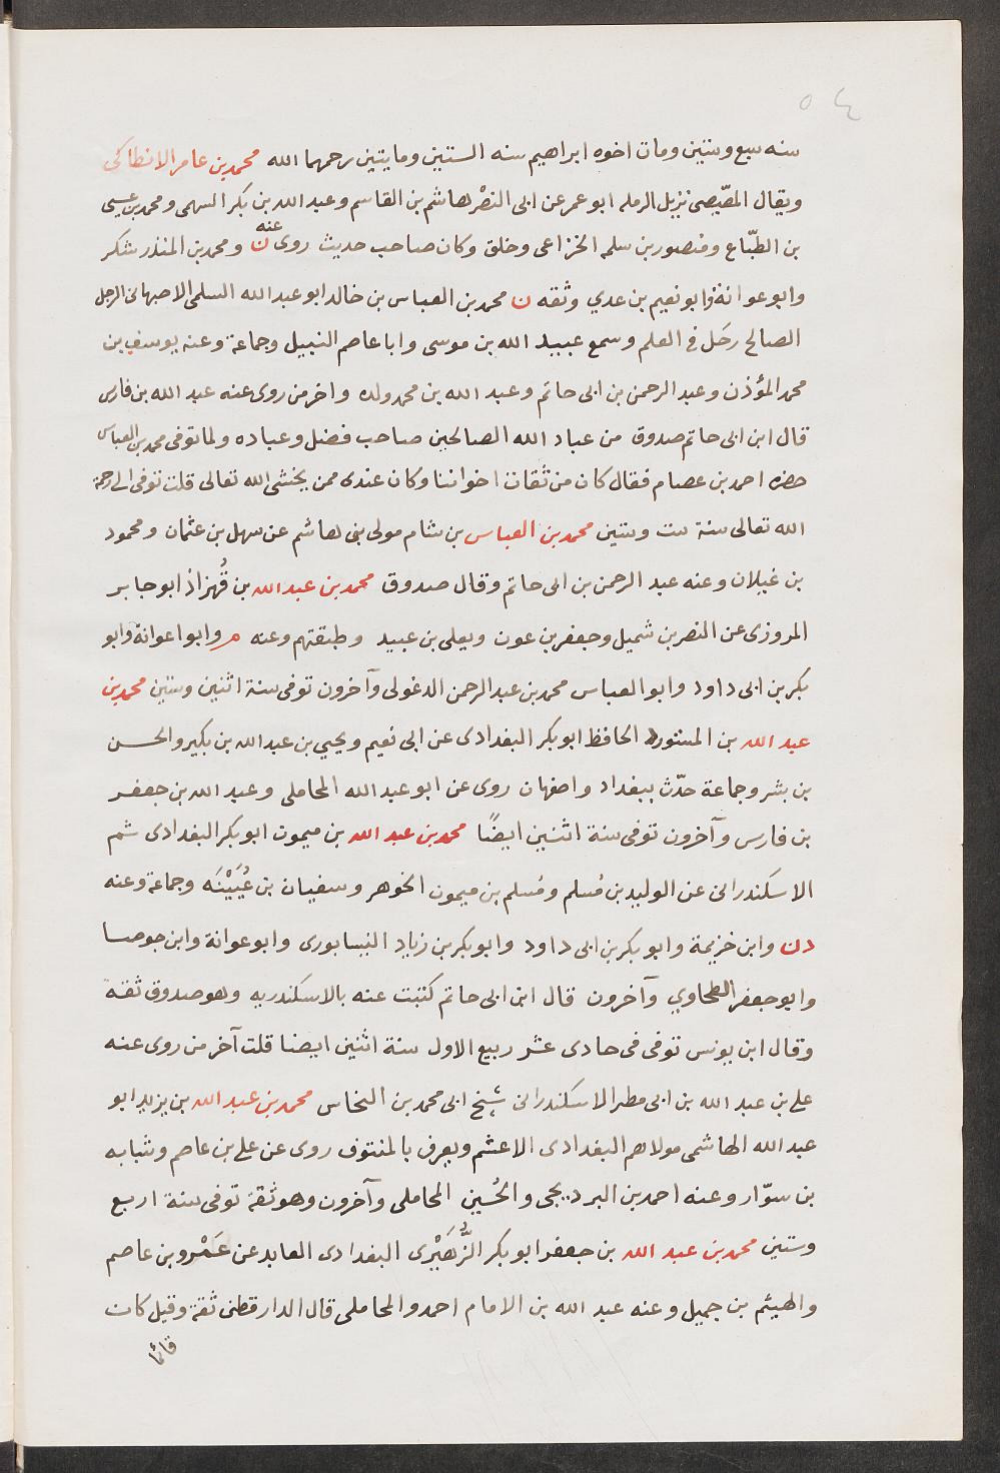 ٥٤
سنه سبع وستين ومات اخوه ابراهيم سنه الستين ومايتين رحمهما الله محمد بن عامر الانطاكى
ويقال المصّيصى نزيل الرمله ابو عمر عن ابى النضْر هاشم بن القاسم وعبد الله بن بكر السهمى ومحمد بن عيسى
بن الطبّاع ومنصور بن سلمه الخزاعى وخلق وكان صاحب حديث روى عنه ن ومحمد بن المنذر شكر
وابو عوانة وابو نعيم بن عدي وثقه ن محمد بن العباس بن خالد ابو عبد الله السلمى الاصبهانى الرجل
الصالح رحَل فى العلم وسمع عبيد الله بن موسى وابا عاصم النبيل وجماعة وعنه يوسف بن
محمد المؤذن وعبد الرحمن بن ابى حاتم وعبد الله بن محمد ولده واخر من روى عنه عبد الله بن فارس
قال ابن ابى حاتم صدوق من عباد الله الصالحين صاحب فضل وعباده ولما توفى محمد بن العباس
حضره احمد بن عصام فقال كان من ثقات اخواننا وكان عندى ممن يخشى الله تعالى قلت توفى الى رحمة
الله تعالى سنة ست وستين محمد بن العباس بن بسام مولى بنى هاشم عن سهل بن عثمان ومحمود
بن غيلان وعنه عبد الرحمن بن ابى حاتم وقال صدوق محمد بن عبد الله بن قُهزاذ ابو جابر
المروزى عن النضر بن شميل وجعفر بن عون ويعلى بن عبيد وطبقتهم وعنه م وابوا عوانة وابو
بكر بن ابى داود وابو العباس محمد بن عبد الرحمن الدغولى وآخرون توفى سنة اثنين وستين محمد بن
عبد الله بن المستورد الحافظ ابو بكر البغدادى عن ابى نعيم ويحيي بن عبد الله بن بكير والحسن
بن بشر وجماعة حدّث ببغداد واصفهان روى عن ابو عبد الله المحاملى وعبد الله بن جعفر
بن فارس وآخرون توفى سنة اثنين ايضًا محمد بن عبد الله بن ميموت ابو بكر البغدادى ثم
الاسكندرانى عن الوليد بن مُسلم ومُسلم بن ميمون الخوهر وسفيان بن عُيَيْنَه وجماعة وعنه
دن وابن خزيمة وابو بكر بن ابى داود وابو بكر بن زياد النيسابورى وابو عوانة وابن جوصا
وابو جعفر الطحاوي وآخرون قال ابن ابى حاتم كتبت عنه بالاسكندريه وهو صدوق ثقة
وقال ابن يونس توفى فى حادى عشر ربيع الاول سنة اثنين ايضا قلت آخر من روى عنه
على بن عبد الله بن ابى مطر الاسكندرانى شيخ ابى محمد بن النحاس محمد بن عبد الله بن يزيد ابو
عبد الله الهاشمى مولاهم البغدادى الاعشم ويعرف بالمنتوف روى عن على بن عاصم وشبابه
بن سوّار وعنه احمد بن البرديجى والحُسين المحاملى وآخرون وهو ثقة توفى سنة اربع
وستين محمد بن عبد الله بن جعفر ابو بكر الزُّهَيْرى البغدادى العابد عن عَمْرو بن عاصم
والهيثم بن جميل وعنه عبد الله بن الامام احمد والمحاملى قال الدارقطنى ثقة وقيل كان
قائما